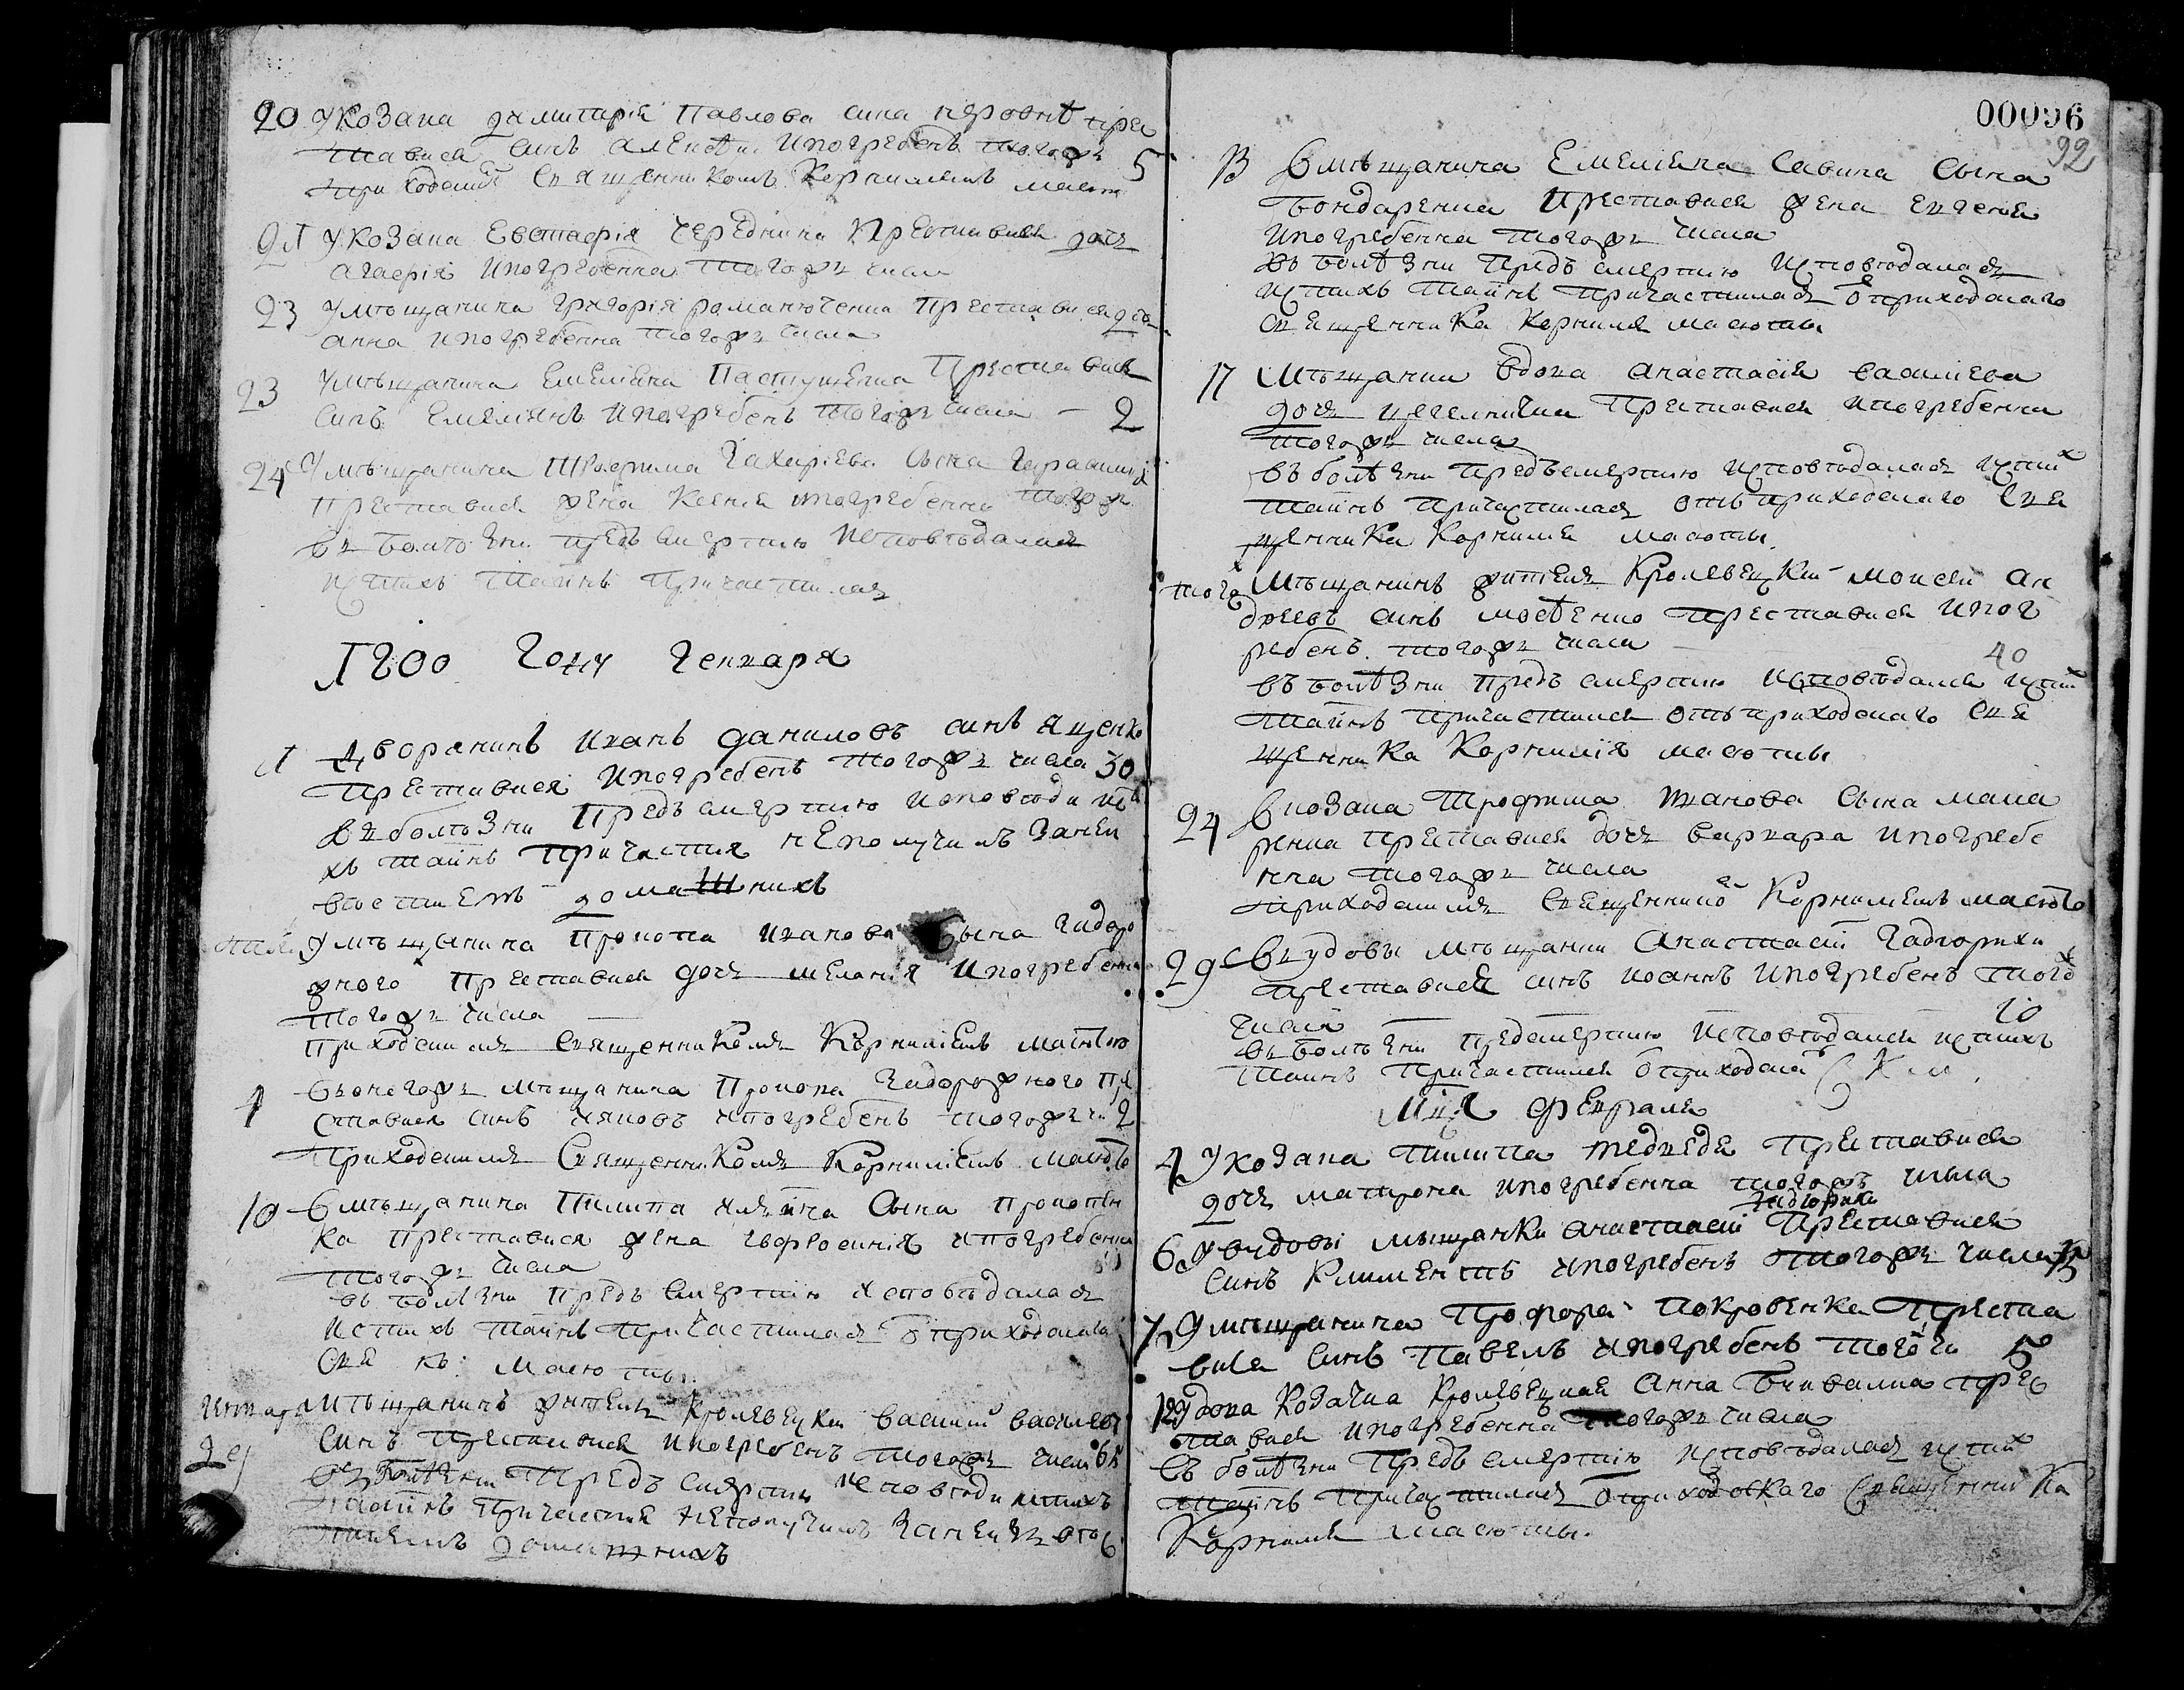 20 У козака димитрия Павлова сина перовит прес
тависа синъ алексѣи ипогребенъ тогожъ 5
приходскимъ священникомъ Корнилиемъ масют
21 У козака Евстафия чередника преставися дочь
агафія ипогребенна тогожъ числа
23 У мѣщанина григорія романюченка преставися доч
анна ипогребенна тогожъ числа
23 У мѣщанина Емелияна Пастушенка Преставися
синъ Емелиянъ ипогребенъ тогожъ числа – 2
24 У мѣщанина Захариева сына
преставися жена Ксения ипогребенна тогожъ
въ болѣзни предъ смертию исповѣдалася
истихъ таинъ Причастилася
1800 Году Генваря
1 Дворянинъ иванъ даниловъ синъ яценко
преставися ипогребенъ тогожъ числа 30
въ болѣзни Предъ смертию исповѣди ист
хъ таинъ Причастия неполучилъ Занеи
вѣстиемъ домашнихъ
У мѣщанина Прокопа иванова сына Задоро
жного преставися дочь мелания ипогребенна
тогожъ числа
приходскимъ священникомъ Корнилиемъ масютою
4 въоногожъ мѣщанина Прокопа Задорожного пре
ставися синъ ияковъ ипогребенъ тогожъ чи 2
Приходскимъ Священникомъ Корнилиемъ масютою
10 въ мѣщанина Пилипа Сына Прокопен
ка преставися жена Евфросиния ипогребенна
тогожъ числа
въ болѣзни предъ смертию исповѣдалася
истихъ таинъ Причастилася ѿ приходскаго
свя къ: масюты
мѣщанинъ житель Кролевецкий василий василиевъ
20 синъ Преставися ипогребенъ тогожъ числа
въ болѣзни Предъ смертию исповѣди истихъ
таинъ Причастия неполучилъ Занеизвѣс
тиемъ домашнихъ
00096
92
13 въ мѣщанина Емелияна Савина Сына
бондаренка преставися жена евгения
ипогребенна тогожъ числа
въ болѣзни Предъ смертию исповѣдалася
истихъ таинъ Причастилася ѿ приходскаго
священника Корнилия масюты
17 мѣщанки вдова анастасия василиева
дочь Преставися ипогребенна
тогожъ числа
въ болѣзни Предъсмертию исповѣдалася истих
таинъ Причастилася отъ приходскаго Свя
щенника Корнилия масюты.
того мѣщанинъ житель Кролевецкий моисей ан
дреевъ синъ преставися ипог
ребенъ тогожъ числа 40
въ болѣзни предъ смертию исповѣдался истих
таинъ Причастился отъ приходскаго Свя
щенника Корнилия масюты
24 в козака Трофима иванова Сына мака
ренка Преставися дочь варвара ипогребе
нна тогожъ числа
приходскимъ Священникомъ Корнилиемъ масютою
29 въ удовы мѣщанки Анастасии
преставися синъ иоаннъ ипогребенъ того
числа 10
въ болѣзни предсмертию исповѣдался истихъ
таинъ Причастился ѿ приходска С К м.
Мця февраля
4 У козака Пилипа медведя Преставися
дочь матрона ипогребенна тогожъ числа
6 У вудовы мѣщанки анастасии Преставися
синъ Климентъ ипогребенъ тогожъ числа
7 У мѣщанина Прохора Покровенка Преста
вися синъ Павелъ ипогребенъ того чи 5
12 удова Козачка Кролевецкая Анна Прес
тависа ипогребенна тогожъ числа
въ болѣзни Предъ смертию исповѣдалася истих
таинъ Причастилася ѿ приходскаго Священника
Корнилия масюты.